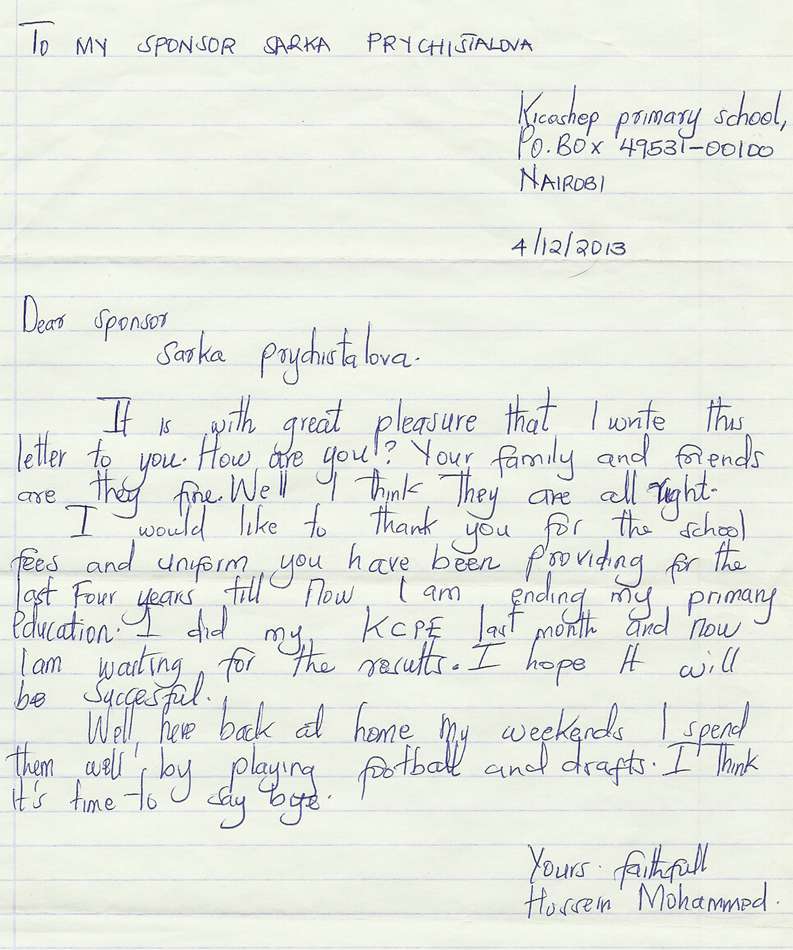 To MY SPONSOR SARKA PRYCHISTALOVA
Kicoshep primary school,
P.O. BOX 49531-00100
NAIROBI
4/12/2013
Dear sponsor
Sarka prychistalova.
It is with great pleasure that I write this
letter to you. How are you!? Your family and friends
are they fine. Well I think they are all right.
I would like to thank you for the school
fees and uniform you have been providing for the
last Four years till now I am ending my primary
education. I did my KCPE last month and now
I am waiting for the results. I hope It will
be succesful.
Well, here back at home my weekends I spend
them well, by playing football and drafts. I think
it's time to say bye.
Yours faithfull
Hussein Mohammed.